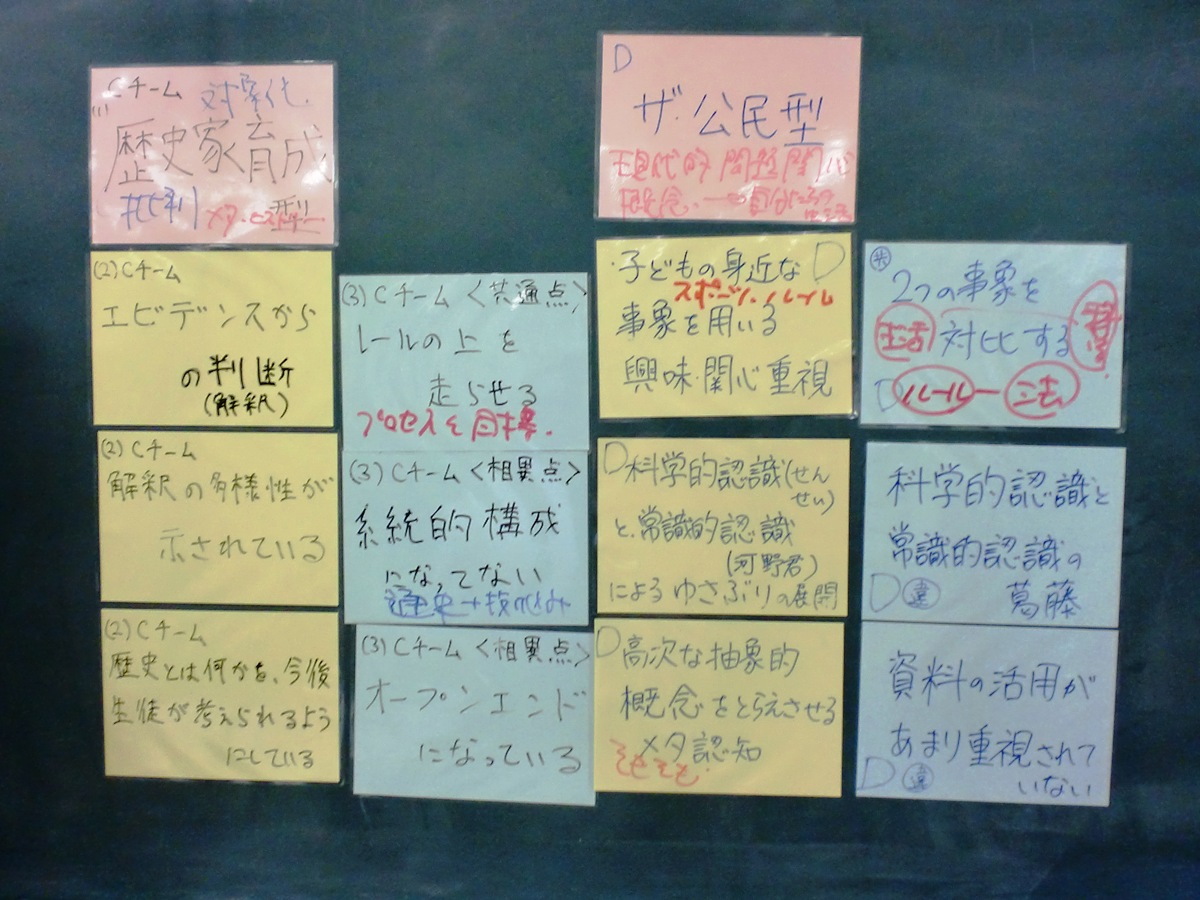 Cチーム 対象化
歴史家育成
批判 メタ・ヒストリー 型
(2)Cチーム
エビデンスから
の判断
(解釈)
(2)Cチーム
解釈の多様性が
示されている
(2)Cチーム
歴史とは何かを、今後
生徒が考えられるよう
にしている
(3)Cチーム<共通点>
レールの上を
走らせる
プロセスを目標.
(3)Cチーム<相異点>
系統的構成
になってない
通史→投げ込み
(3)Cチーム<相異点>
オープンエンド
になっている
D
ザ・公民型
現代的問題関心
概念
・子どもの身近な D
スポーツ.ルール
事象を用いる
興味・関心重視
D科学的認識(せん
せい)
と常識的認識
(河野君)
によるゆさぶりの展開
D高次な抽象的
概念をとらえさせる
メタ認知
そもそも.
共
2つの事象を
生活 対比する
D ルール ー
科学的認識と
常識的認識の
D 違 葛藤
資料の活用が
あまり重視されて
D 違 いない